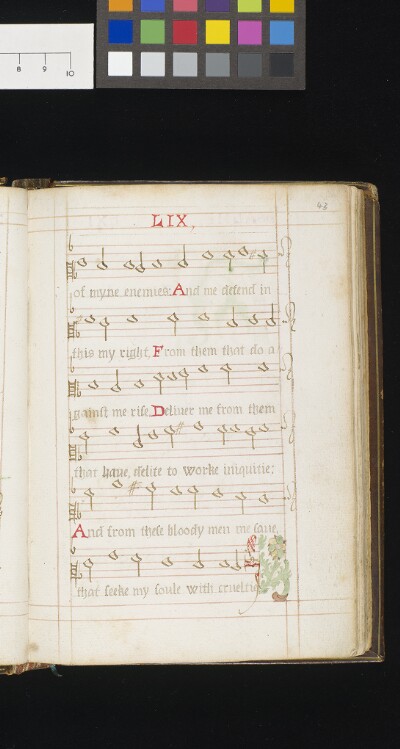 8 9 10
43
LIX,
of myne enemies: And me defend in
this my right, From them that do a
gainst me rise, Deliver me from them
that haue, delite to worke iniquitie:
And from these bloody men me saue,
that seeke my soule with crueltie